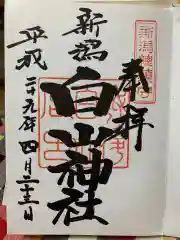 奉拝
新潟
白山神社
平成二十九年四月二十三日